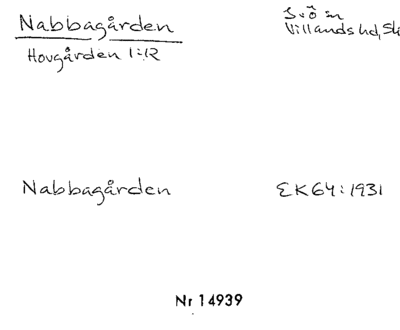 Nabbagården
Hovgården 1:12
Villands hd, Sk
Nabbagården
EK64:1931
Nr 14939